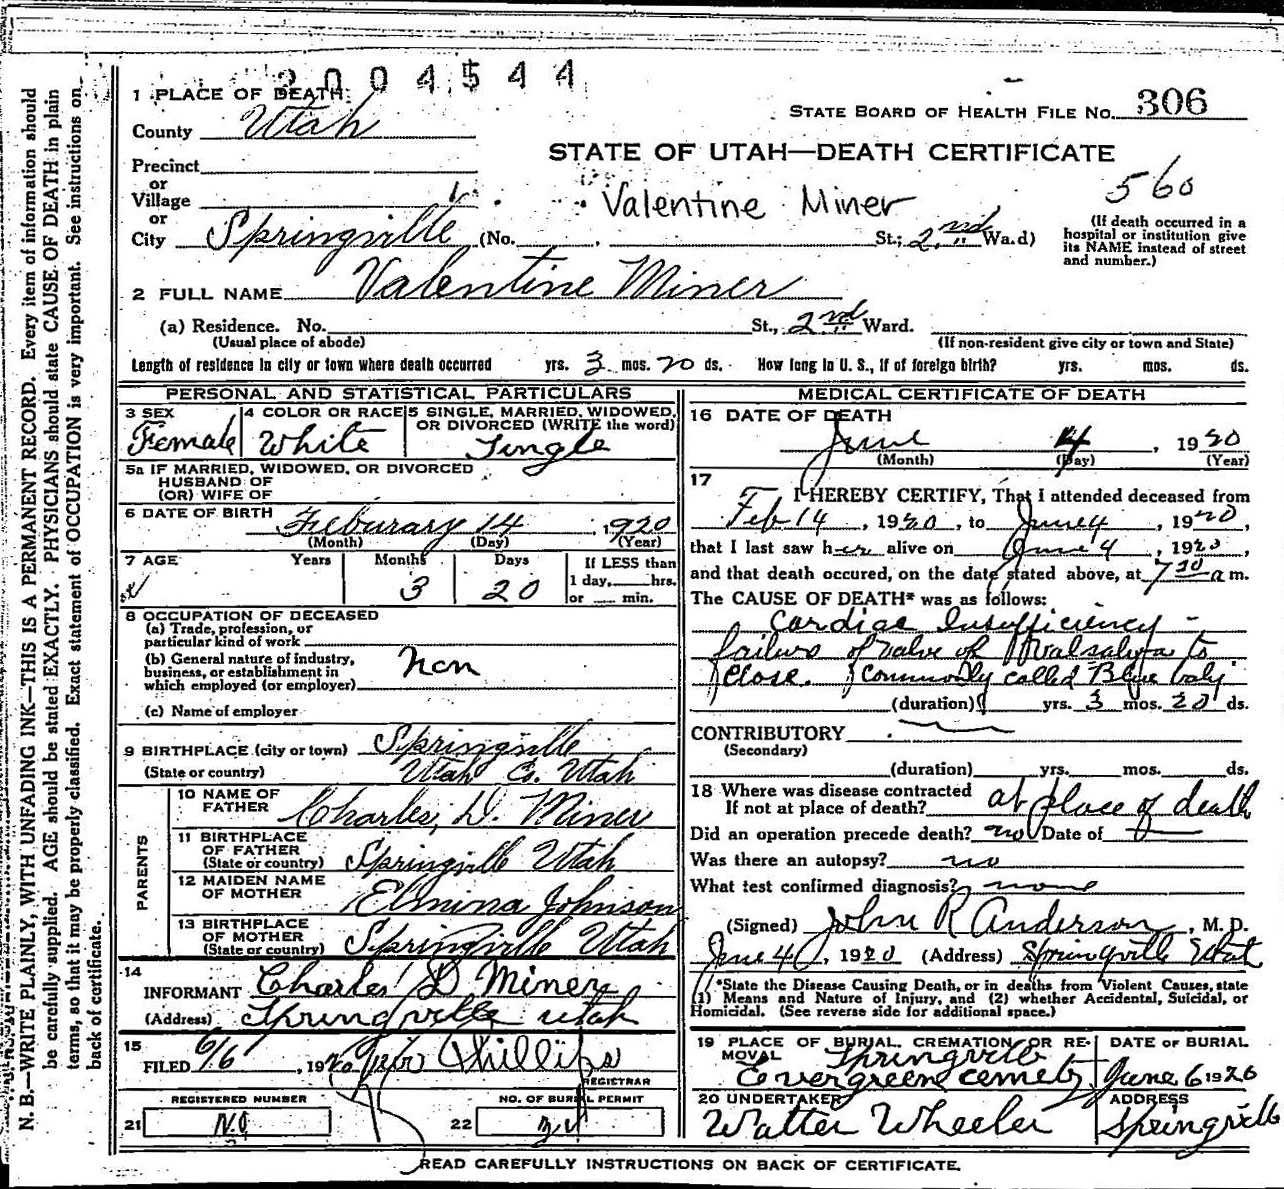 2004544
1 PLACE OF DEATH:
STATE BOARD OF HEALTH FILE No. 306
County Utah
STATE OF UTAH—DEATH CERTIFICATE
Precinct
or
Village
Valentine Miner
560
or
City Springville (No. , St.; 2nd Wa.d)
(If death occurred in a hospital or institution give its NAME instead of street and number.)
2 FULL NAME Valentine Miner
(a) Residence. No. St., 2nd Ward.
(Usual place of abode) (If non-resident give city or town and State)
Length of residence in city or town where death occurred yrs. 3 mos. 20 ds. How long in U. S., if of foreign birth? yrs. mos. ds.
PERSONAL AND STATISTICAL PARTICULARS
3 SEX Female
4 COLOR OR RACE White
5 SINGLE, MARRIED, WIDOWED, OR DIVORCED (WRITE the word) Single
5a IF MARRIED, WIDOWED, OR DIVORCED
HUSBAND OF
(OR) WIFE OF
6 DATE OF BIRTH Feburary 14, 1920
(Month) (Day) (Year)
7 AGE Years Months Days If LESS than
3 20 1 day, hrs.
or min.
8 OCCUPATION OF DECEASED
(a) Trade, profession, or
particular kind of work
(b) General nature of industry,
business, or establishment in
which employed (or employer) non
(c) Name of employer
9 BIRTHPLACE (city or town) Springville
(State or country) Utah Co. Utah
PARENTS
10 NAME OF
FATHER Charles, D. Miner
11 BIRTHPLACE
OF FATHER
(State or country) Springville Utah
12 MAIDEN NAME
OF MOTHER Elmina Johnson
13 BIRTHPLACE
OF MOTHER
(State or country) Springville Utah
14
INFORMANT Charles D Miner
(Address) Springville utah
15
FILED 6/6, 1920 Phillips
REGISTRAR
REGISTERED NUMBER
NO. OF BURIAL PERMIT
21
22
MEDICAL CERTIFICATE OF DEATH
16 DATE OF DEATH
June 4, 1920
(Month) (Day) (Year)
17
I HEREBY CERTIFY, That I attended deceased from
Feb 14, 1920, to June 4, 1920,
that I last saw her alive on June 4, 1920,
and that death occured, on the date stated above, at 7 20 a m.
The CAUSE OF DEATH* was as follows:
Cardiac Insufficiency -
failure of valve of Valsalva to
close. Commonly called Blue baby
(duration) yrs. 3 mos. 20 ds.
CONTRIBUTORY
(Secondary)
(duration) yrs. mos. ds.
18 Where was disease contracted
If not at place of death? at place of death
Did an operation precede death? no Date of
Was there an autopsy? no
What test confirmed diagnosis? none
(Signed) John R Anderson, M. D.
June 4, 1920 (Address) Springville Utah
*State the Disease Causing Death, or in deaths from Violent Causes, state
(1) Means and Nature of Injury, and (2) whether Accidental, Suicidal, or
Homicidal. (See reverse side for additional space.)
19 PLACE OF BURIAL, CREMATION OR RE-
MOVAL Springville
Evergreen cemety
DATE OF BURIAL
June 6 1920
20 UNDERTAKER
Walter Wheeler
ADDRESS
Springville
READ CAREFULLY INSTRUCTIONS ON BACK OF CERTIFICATE.
N. B.—WRITE PLAINLY, WITH UNFADING INK—THIS IS A PERMANENT RECORD. Every item of information should
be carefully supplied. AGE should be stated EXACTLY. PHYSICIANS should state CAUSE OF DEATH in plain
terms, so that it may be properly classified. Exact statement of OCCUPATION is very important. See instructions on
back of certificate.